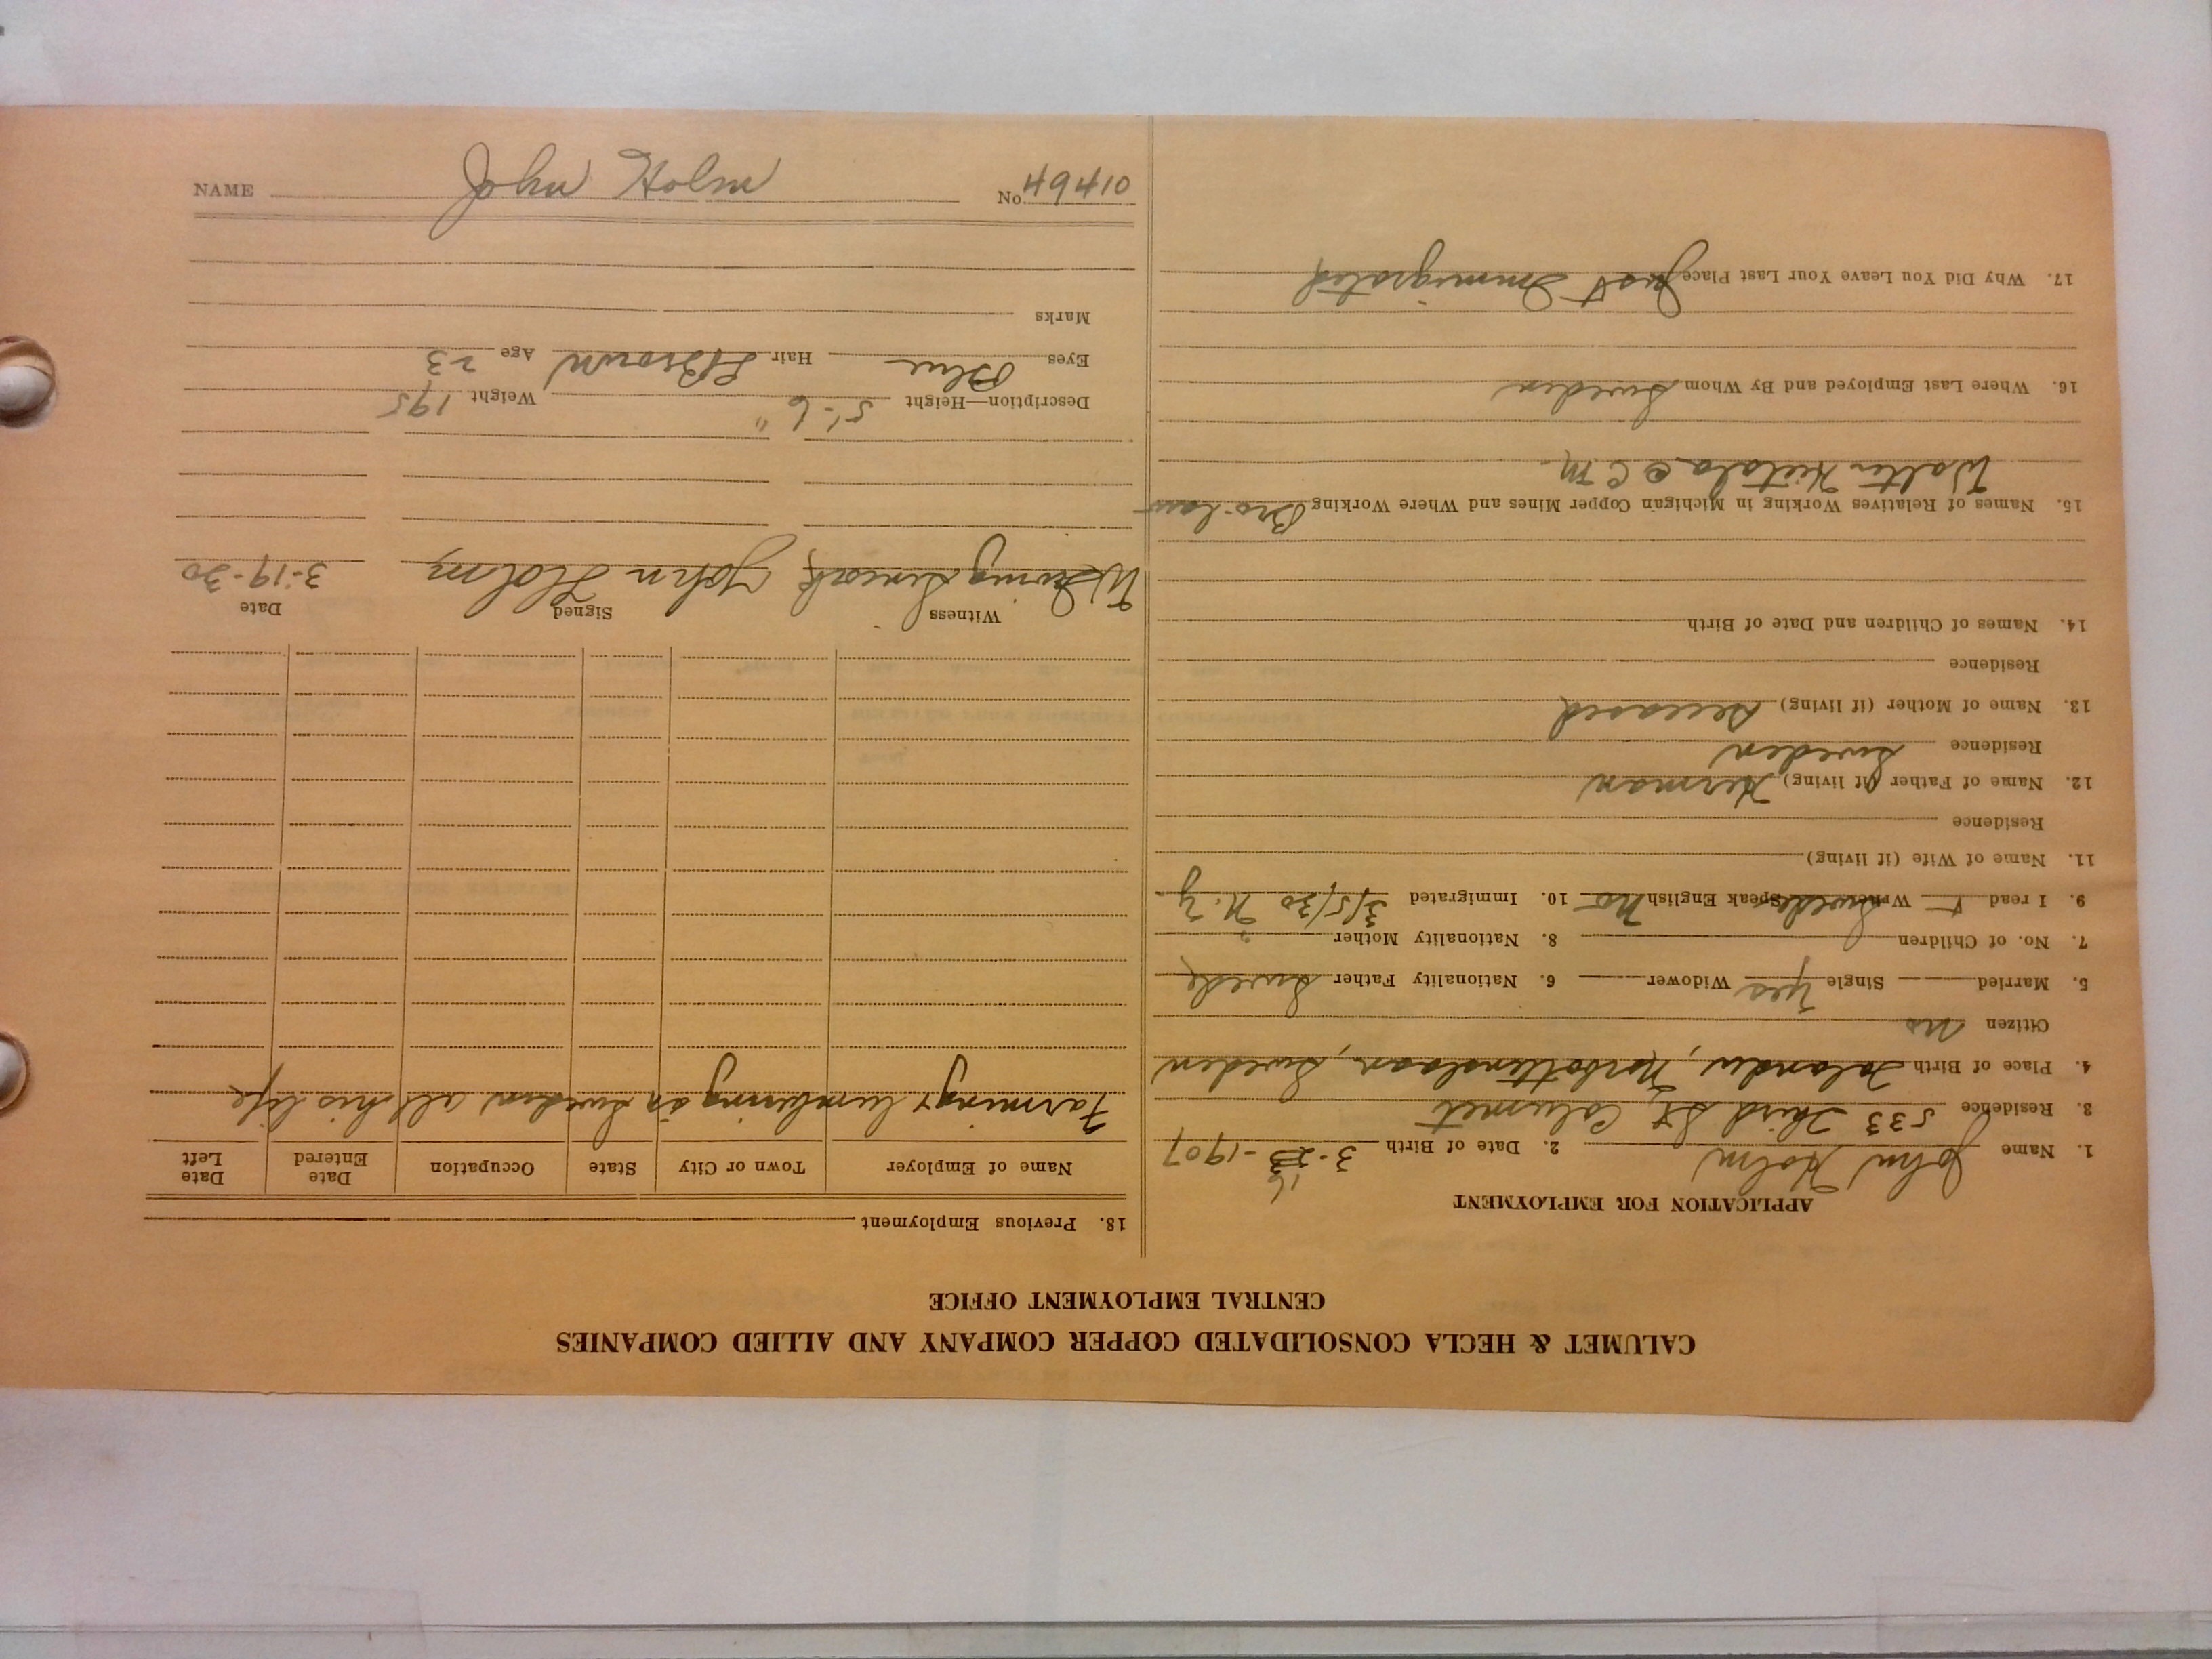 CALUMET & HECLA CONSOLIDATED COPPER COMPANY AND ALLIED COMPANIES
CENTRAL EMPLOYMENT OFFICE
APPLICATION FOR EMPLOYMENT
1. Name John Holm 2. Date of Birth 3-16-1907
3. Residence 533 Third St, Calumet
4. Place of Birth Norbottenslaan, Sweden
Citizen no
5. Married Single Yes Widower 6. Nationality Father Swede
7. No. of Children 8. Nationality Mother "
9. I read Write Swede Speak English No 10. Immigrated 3/5/30 N.Y.
11. Name of Wife (if living)
Residence
12. Name of Father (if living) Herman
Residence Sweden
13. Name of Mother (if living) Deceased
Residence
14. Names of Children and Date of Birth
15. Names of Relatives Working in Michigan Copper Mines and Where Working Bro-law
Walter Hietala C M.
16. Where Last Employed and By Whom Sweden
17. Why Did You Leave Your Last Place Just Immigrated
18. Previous Employment
Name of Employer Town or City State Occupation Date Entered Date Left
Farming & lumbering in Sweden all his life
Witness Signed Date
John Holm 3-19-30
Description—Height 5'-6" Weight 195
Eyes Blue Hair Brown Age 23
Marks
NAME John Holm No. 49410